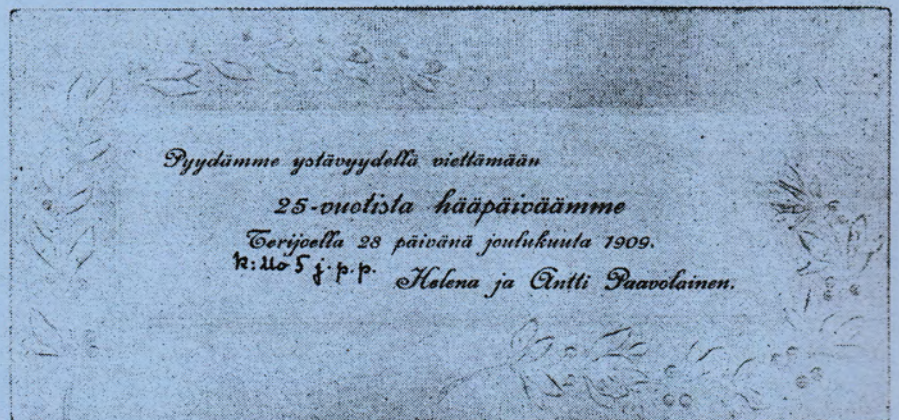 Pyydämme ystävyydellä viettämään
25-vuotista hääpäiväämme
Terijoella 28 päivänä joulukuuta 1909.
k:llo 5 j.p.p.
Helena ja Antti Paavolainen.